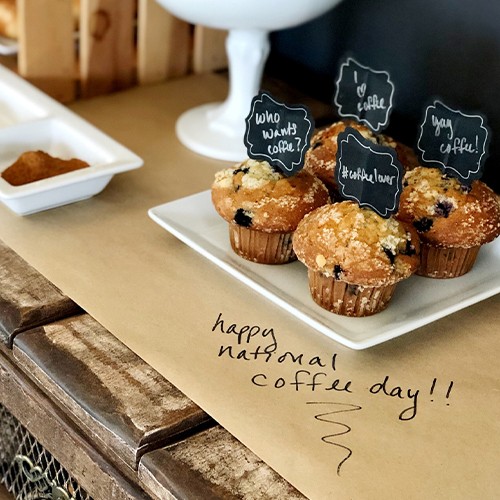 I ♡ coffee
who
wants
coffee?
yay
coffee!
#coffeelover
happy
national
coffee day!!